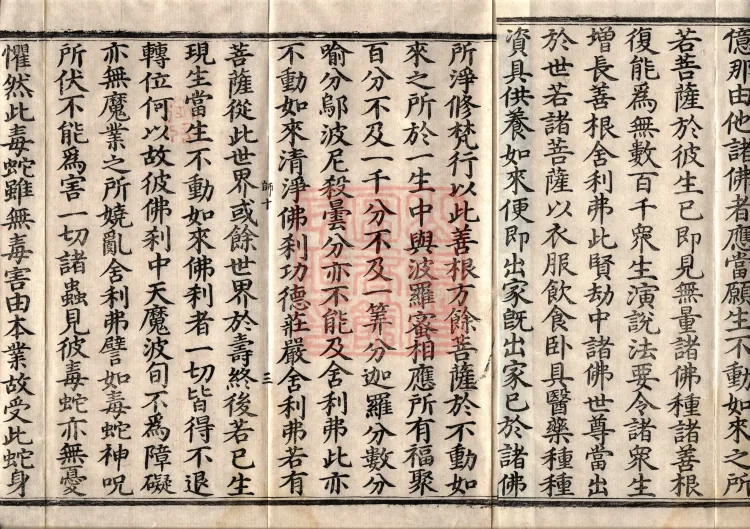 億那由他諸佛者應當願生不動如來之所
若菩薩於彼生已即見無量諸佛種諸善根
復能爲無數百千衆生演說法要令諸衆生
增長善根舍利弗此賢劫中諸佛世尊當出
於世若諸菩薩以衣服飲食卧具醫藥種種
資具供養如來便即出家旣出家已於諸佛
所淨修梵行以此善根方餘菩薩於不動如
來之所於一生中與波羅蜜相應所有福聚
百分不及一千分不及一筭分迦羅分數分
喻分鄔波尼殺曇分亦不能及舍利弗此亦
不動如來清淨佛刹功德莊嚴舍利弗若有
師十
三
菩薩從此世界或餘世界於壽終後若已生
現生當生不動如來佛刹者一切皆得不退
轉位何以故彼佛刹中天魔波旬不為障礙
亦無魔業之所嬈亂舍利弗譬如毒蛇神呪
所伏不能爲害一切諸蟲見彼毒蛇亦無憂
懼然此毒蛇雖無毒害由本業故受此蛇身